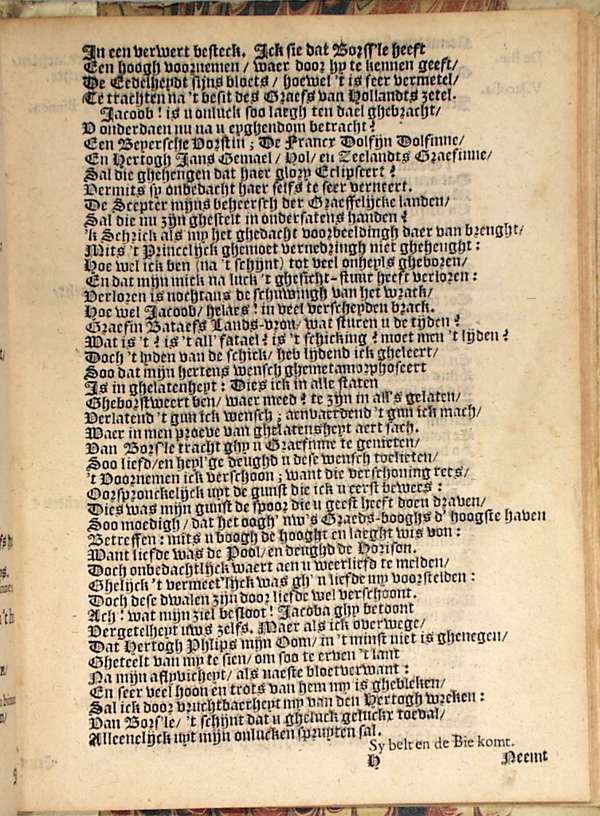 In een verwert besteck. Ick sie dat Borss'le heeft
Een hoogh voornemen / waer door hy te kennen geeft/
De Eedelheydt sijns bloets / hoewel 't is seer vermetel/
Te trachten na 't besit des Graefs van Hollandts zetel.
Jacoob ! is u onluck soo laegh ten dael ghebracht/
D onderdaen nu na u eyghendom betracht ?
Een Beyersche Vorstin ; De Francx Dolfijn Dolfinne/
En Hertogh Jans Gemael / Hol/ en Zeelandts Graefinne/
Sal die ghehengen dat haer glory Eclipseert ?
Vermits sy onbedacht haer selfs te seer verneert.
De Scepter mijns beheersch der Graeffelijcke landen/
Sal die nu zijn ghestelt in ondersatens handen ?
'k Schrick als my het ghedacht voorbeeldingh daer van brenght/
Mits 't Princelijck ghemoet vernedringh niet ghehenght :
Hoe wel ick ben (na 't schijnt) tot veel onheyls gheboren/
En dat mijn mick na luck 't ghesicht-stuur heeft verloren :
Verloren is nochtans de schuwingh van het wrack/
Hoe wel Jacoob/ helaes ! in veel verscheyden brack.
Graefin Bataefs Lands-vrou/ wat sturen u de tijden ?
Wat is 't ? is 't all' fatael ? is 't schicking ? moet men 't lijden ?
Doch 't lyden van de schick/ heb lijdend ick gheleert/
Soo dat mijn hertens wensch ghemetamorphoseert
Is in ghelatenheyt : Dies ick in alle staten
Gheborstweert ben/ waer meed ? te zijn in all's gelaten/
Verlatend 't gun ick wensch ; aenvaerdend 't gun ick mach/
Waer in men proeve van ghelatensheyt aert sach.
Van Bors'le tracht ghy u Graefinne te genieten/
Soo liefd/en heyl'ge deughd u dese wensch toelieten/
't Voornemen ick verschoon ; want die verschoning rees/
Oorspronckelijck uyt de gunst die ick u eerst bewees :
Dies was mijn gunst de spoor die u geest heeft doen draven/
Soo moedigh / dat het oogh' uw's Graeds-booghs d' hoogste haven
Betreffen : mits u boogh de hooght en laeght wis von :
Want liefde was de Pool/ en deughd de Horison.
Doch onbedachtlijck waert aen u weerliefd te melden/
Ghelijck 't vermeet'lijck was gh' u liefde my voorstelden :
Doch dese dwalen zijn door liefde wel verschoont.
Ach ! wat mijn ziel besloot ! Jacoba ghy betoont
Vergetelheyt uws zelfs. Maer als ick overwege/
Dat Hertogh Phlips mijn Oom/ in 't minst niet is ghenegen/
Gheteelt van my te sien/ om soo te erven 't lant
Na mijn aflyvicheyt/ als naeste bloetverwant :
En seer veel hoon en trots van hem my is ghebleken/
Sal ick door vruchtbaerheyt my van den Hertogh wreken :
Van Bors'le/ 't schijnt dat u gheluck geluckx toeval/
Alleenelijck uyt mijn onlucken spruyten sal.
Sy belt en de Bie komt.
H Neemt